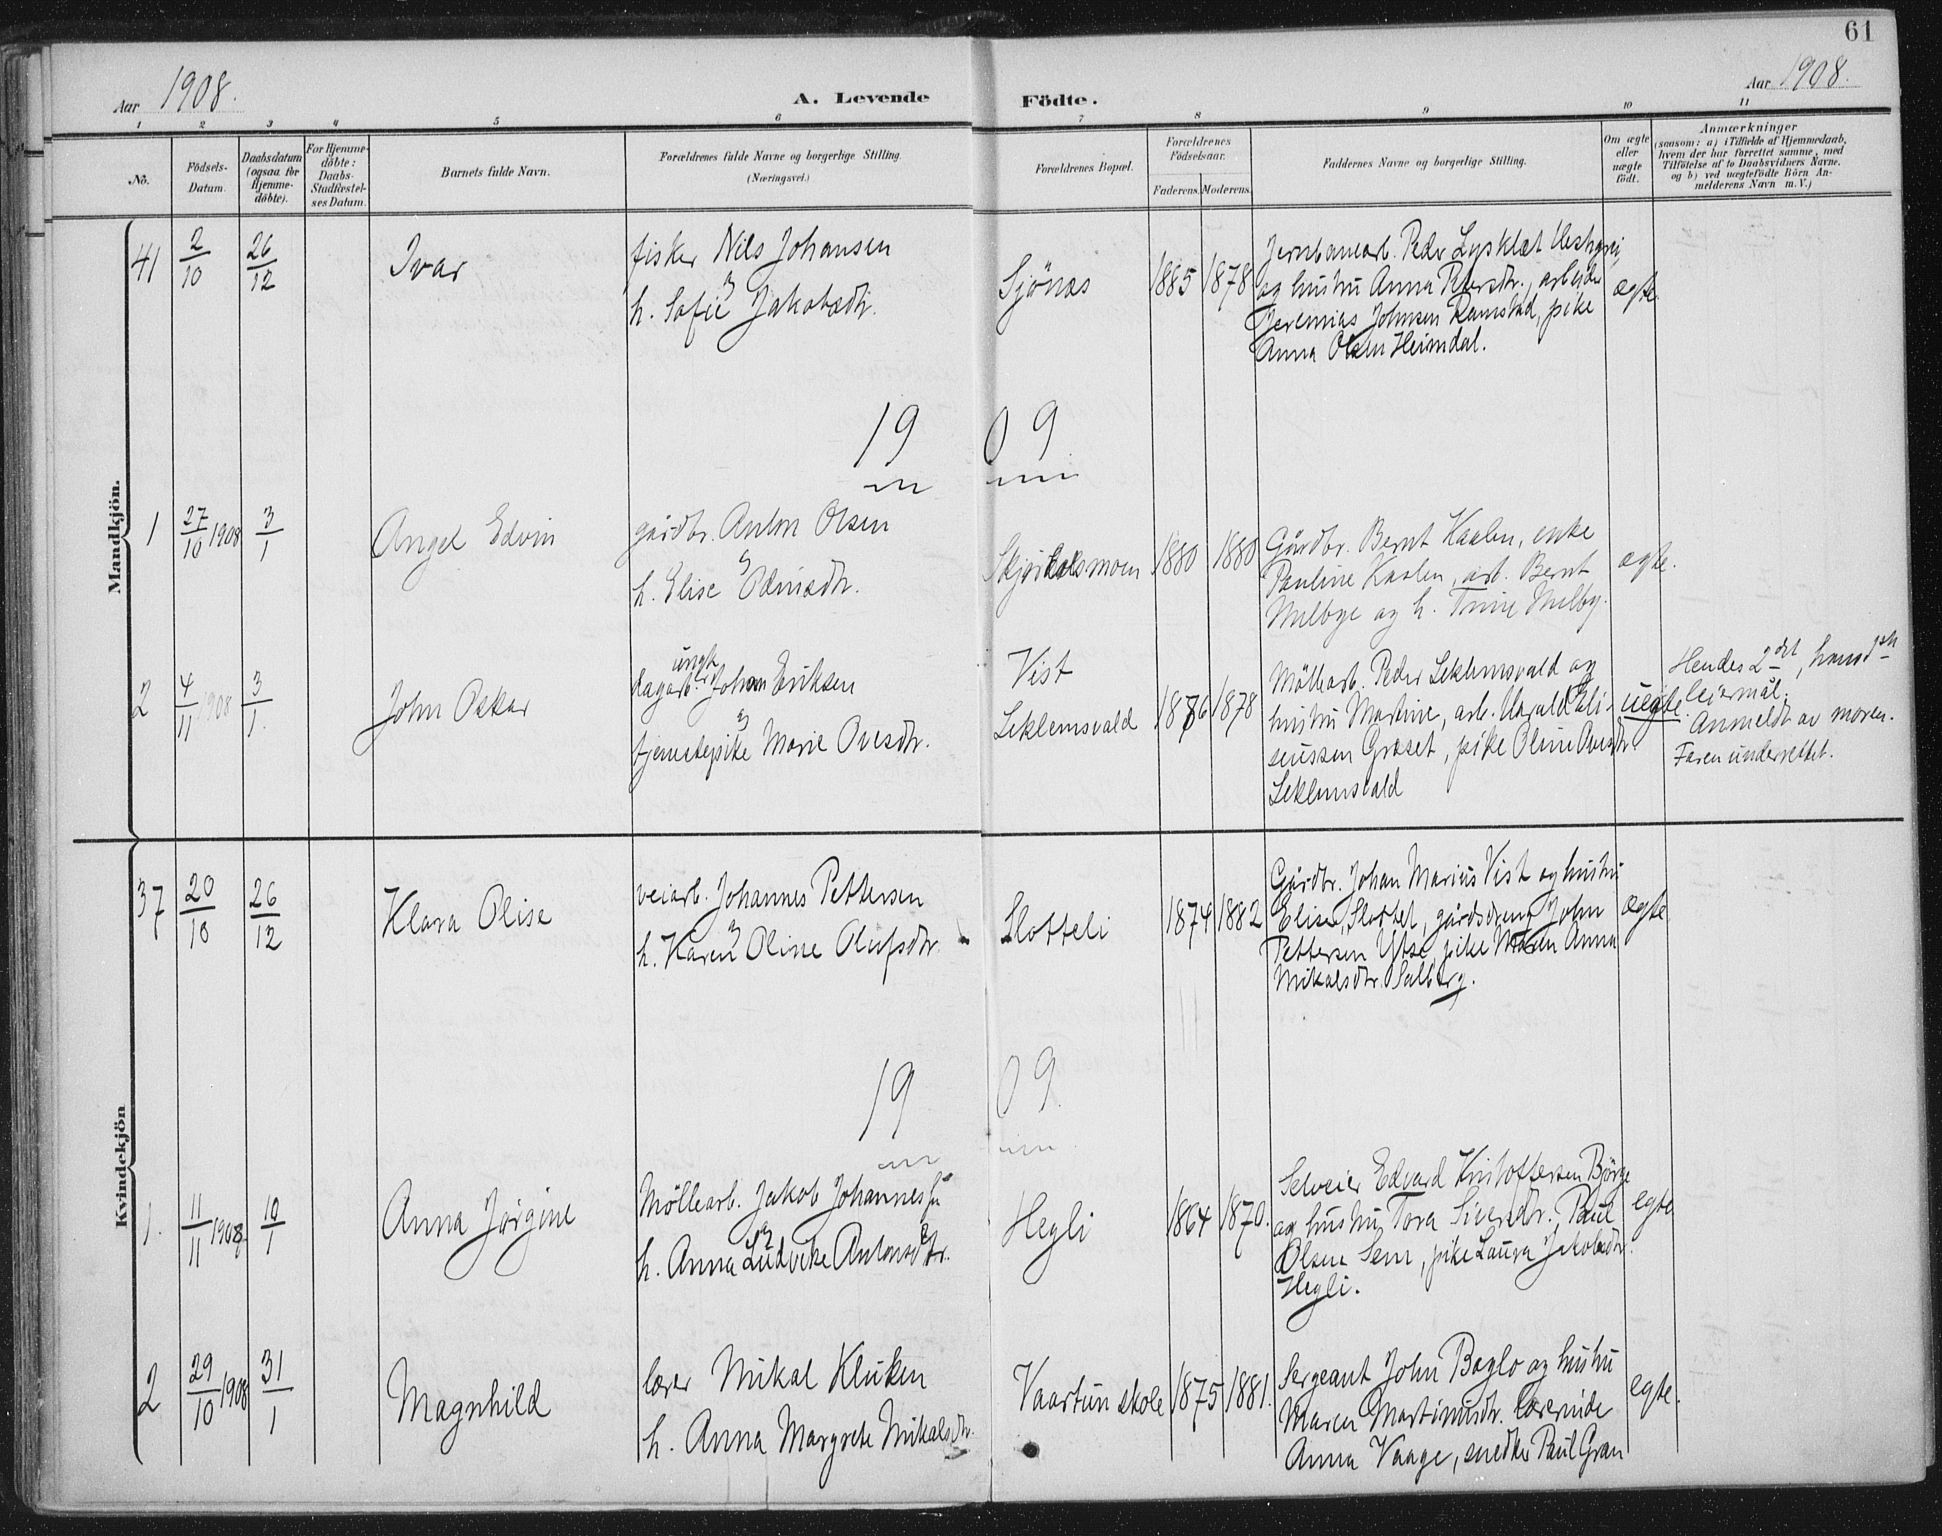 61
Aar 1908.
A. Levende Födte.
Aar 1908.
1 2 3 4 5 6 7 8 9 10 11
No.
Födsels-
Datum.
Daabsdatum
(ogsaa for
Hjemme-
döbte).
For Hjemme-
döbte:
Daabs-
Stadfæstel-
ses Datum.
Barnets fulde Navn.
Forældrenes fulde Navne og borgerlige Stilling.
(Næringsvei.)
Forældrenes Bopæl.
Forældrenes
Födselsaar.
Faderens. Moderens.
Faddernes Navne og borgerlige Stilling.
Om ægte
eller
uægte
födt.
Anmærkninger
(saasom: a) i Tilfælde af Hjemmedaab,
hvem der har forrettet samme, med
Tilföielse af to Daabsvidners Navne.
og b) ved uægtefödte Börn An-
melderens Navn m. V.)
Mandkjön.
41
2/10
26/12
Ivar
fisker Nils Johansen
og
h. Sofie Jakobsdtr.
Sjönes
1885 1878
Jernbanearb. Peder Lysklæt
og hustru Anna Pedersdtr., arbejder
Jeremias Johnsen Ramstad, pike
Anna Olsen Heimdal.
ægte.
1909
1
27/10 1908
3/1
Angel Edvin
gårdbr. Anton Olsen
og
h. Elise Odinsdtr.
1880 1880
Gårdbr. Bernt Kaalen, enke
Pauline Kaalen, arb. Bernt
Melbye og h. Trine Melby.
ægte.
2
4/11 1908
3/1.
John Oskar
ungk.
dagarb. Johan Eriksen
og
tjenestepike Marie Ovesdtr.
Vist
Leklemsvald
1876 1878
Möllearb. Peder Leklemsvald og
hustru Martine, arb. Harald Eli-
seussen Græset, pike Oline Ovesdtr.
Leklemsvald
uegte.
Hendes 2det, hans 1ste
leiermål.
Anmeldt av moren.
Faren underrettet.
Kvindekjön
37
20/10
26/12
Klara Olise
veiarb. Johannes Pettersen
og
h. Karen Oline Olufsdtr.
Slotteli
1874 1882
Gårdbr. Johan Marius Vist og hustru
Elise, Slottet, gårdsdreng John
Pettersen Ytse, pike Maren Anna
Mikalsdtr. Salberg.
ægte
1909
1.
11/11 1908.
10/1
Anna Jörgine
Möllearb. Jakob Johannessen
og
h. Anna Ludvike Antonsdtr.
Hegli
1864 1870.
Selveier Edvard Kristoffersen Börge
og hustru Tora Sivertsdtr., Paul
Olsen Sem, pike Laura Jakobsdtr.
Hegli.
egte
2
29/10 1908
31/1
Magnhild
lærer Mikal Kluken
h. Anna Margrete Mikalsdtr.
Vaartun skole
1875 1881.
Sergeant John Baglo og hustru
Maren Martinusdtr. lærerinde
Anna Vaage, snedker Paul Gran
egte.